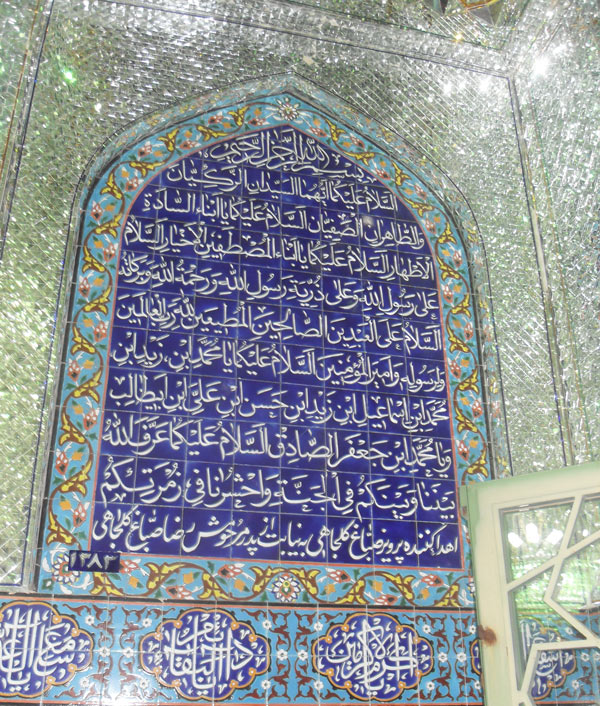 بسم الله الرحمن الرحیم
السلام علیکما ایها السیدان الزکیان
والطاهران الصفیان السلام علیکما یا ابناء السادة
الاطهار السلام علیکما یا ابناء المصطفین الاخیار السلام
علی رسول الله وعلی ذریة رسول الله ورحمة الله وبرکاته
السلام علی العبدین الصالحین المطیعین لله رب العالمین
ولرسوله ولامیر المؤمنین السلام علیکما یا محمد ابن زید ابن
محمد ابن اسماعیل ابن زید ابن حسن ابن علی ابن ابیطالب
ویا محمد ابن جعفر الصادق السلام علیکما عرف الله
بیننا وبینکم فی الجنة واحشرنا فی زمرتکم
اهداکننده پرویز صباغ گلجاهی به نیابت از پدر مرحومش رضا صباغ گلجاهی
۱۳۸۳